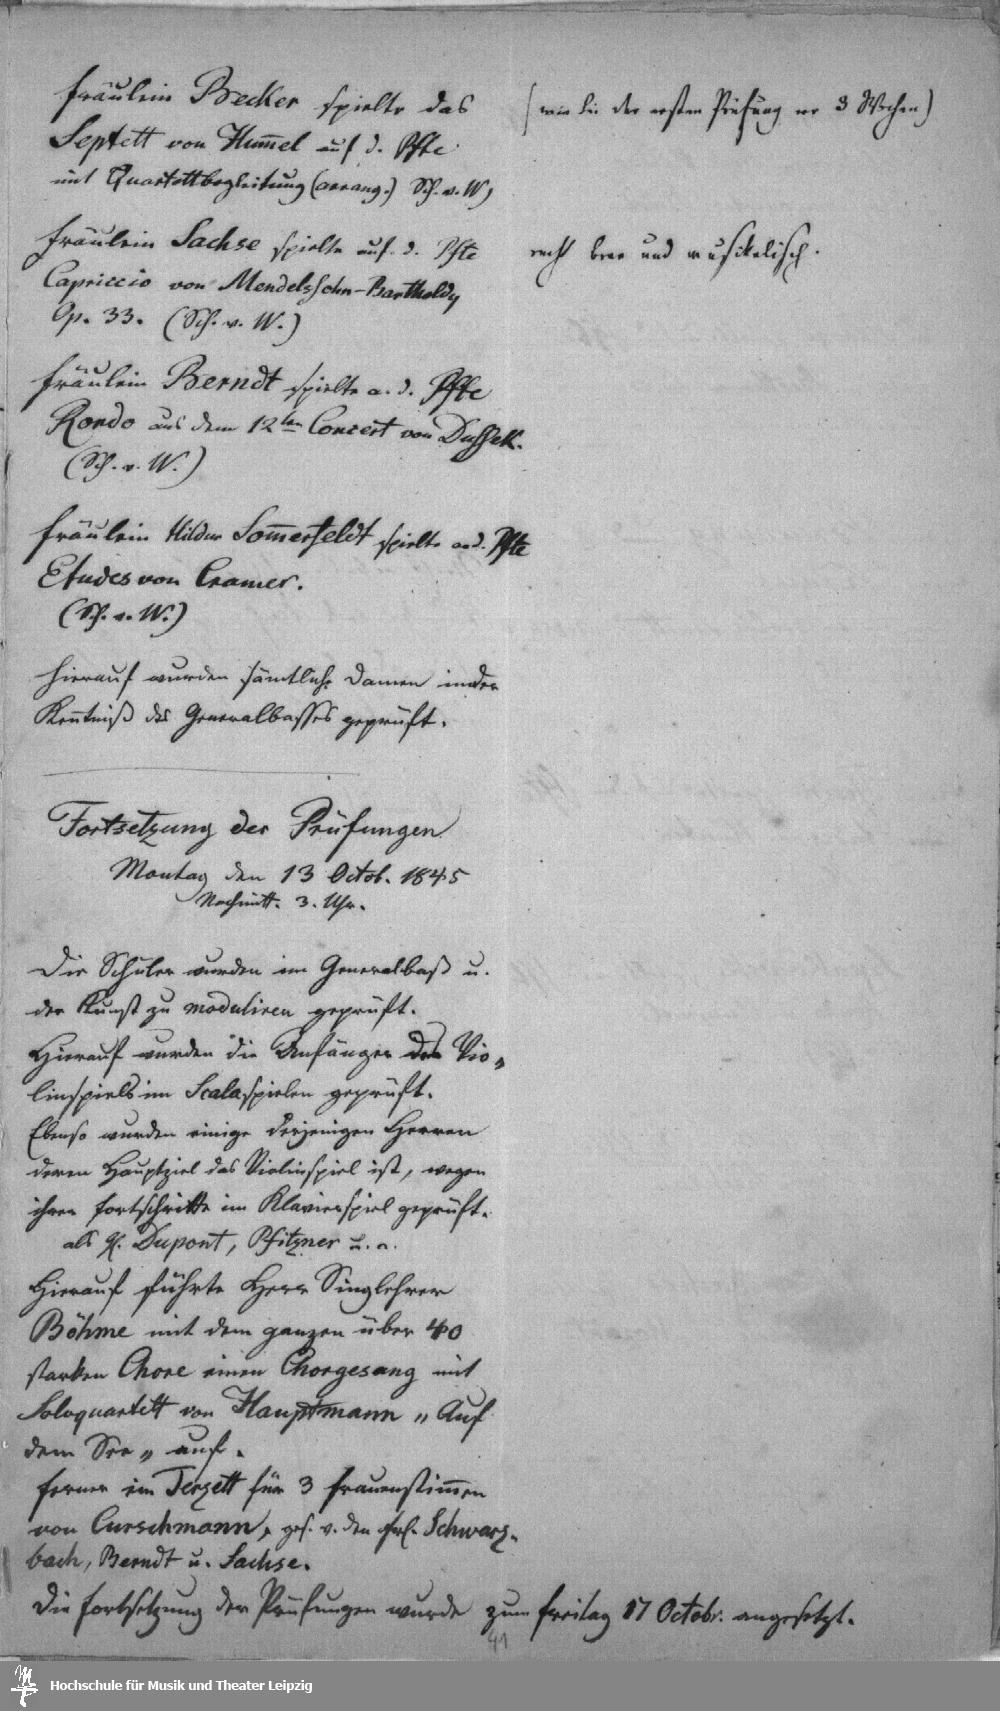 Fräulein Becker spielte das
(wie bei der ersten Prüfung vor 3 Wochen)
Septett von Hum̅el auf d. Pfte
mit Quartettbegleitung (arrang.) Sch. v. W)
Fräulein Sachse spielte auf. d. Pfte
recht brav und musikalisch.
Capriccio von Mendelssohn-Bartholdy
Op. 33. (Sch. v. W.)
Fräulein Berndt spielte a. d. Pfte
Rondo aus dem 12ten Concert von Dussek.
(Sch. v. W.)
Fräulein Hildur Som̅erfeldt spielte a. d. Pfte
Etudes von Cramer.
(Sch. v. W.)
Hierauf wurden sämtliche Damen in der
Ken̅tniß des Generalbasses geprüft.
Fortsetzung der Prüfungen
Montag den 13 Octob. 1845
Nachmitt. 3. Uhr.
Die Schüler wurden im Generalbaß u.
der Kunst zu moduliren geprüft.
Hierauf wurden die Anfänger des Vio„
linspiels im Scalaspielen geprüft.
Ebenso wurden einige derjenigen Herren
deren Hauptziel das Violinspiel ist, wegen
ihrer Fortschritte im Klavierspiel geprüft.
als H. Dupont, Pfitzner u. a.
Hierauf führte Herr Singlehrer
Böhme mit dem ganzen über 40
starken Chore einen Chorgesang mit
Soloquartett von Hauptmann „Auf
dem See„ auf.
Ferner ein Terzett für 3 Frauenstim̅en
von Curschmann, ges. v. den Frl. Schwarz-
bach, Berndt u. Sachse.
Die Fortsetzung der Prüfungen wurde zum Freitag 17 Octobr. angesetzt.
41
Hochschule für Musik und Theater Leipzig